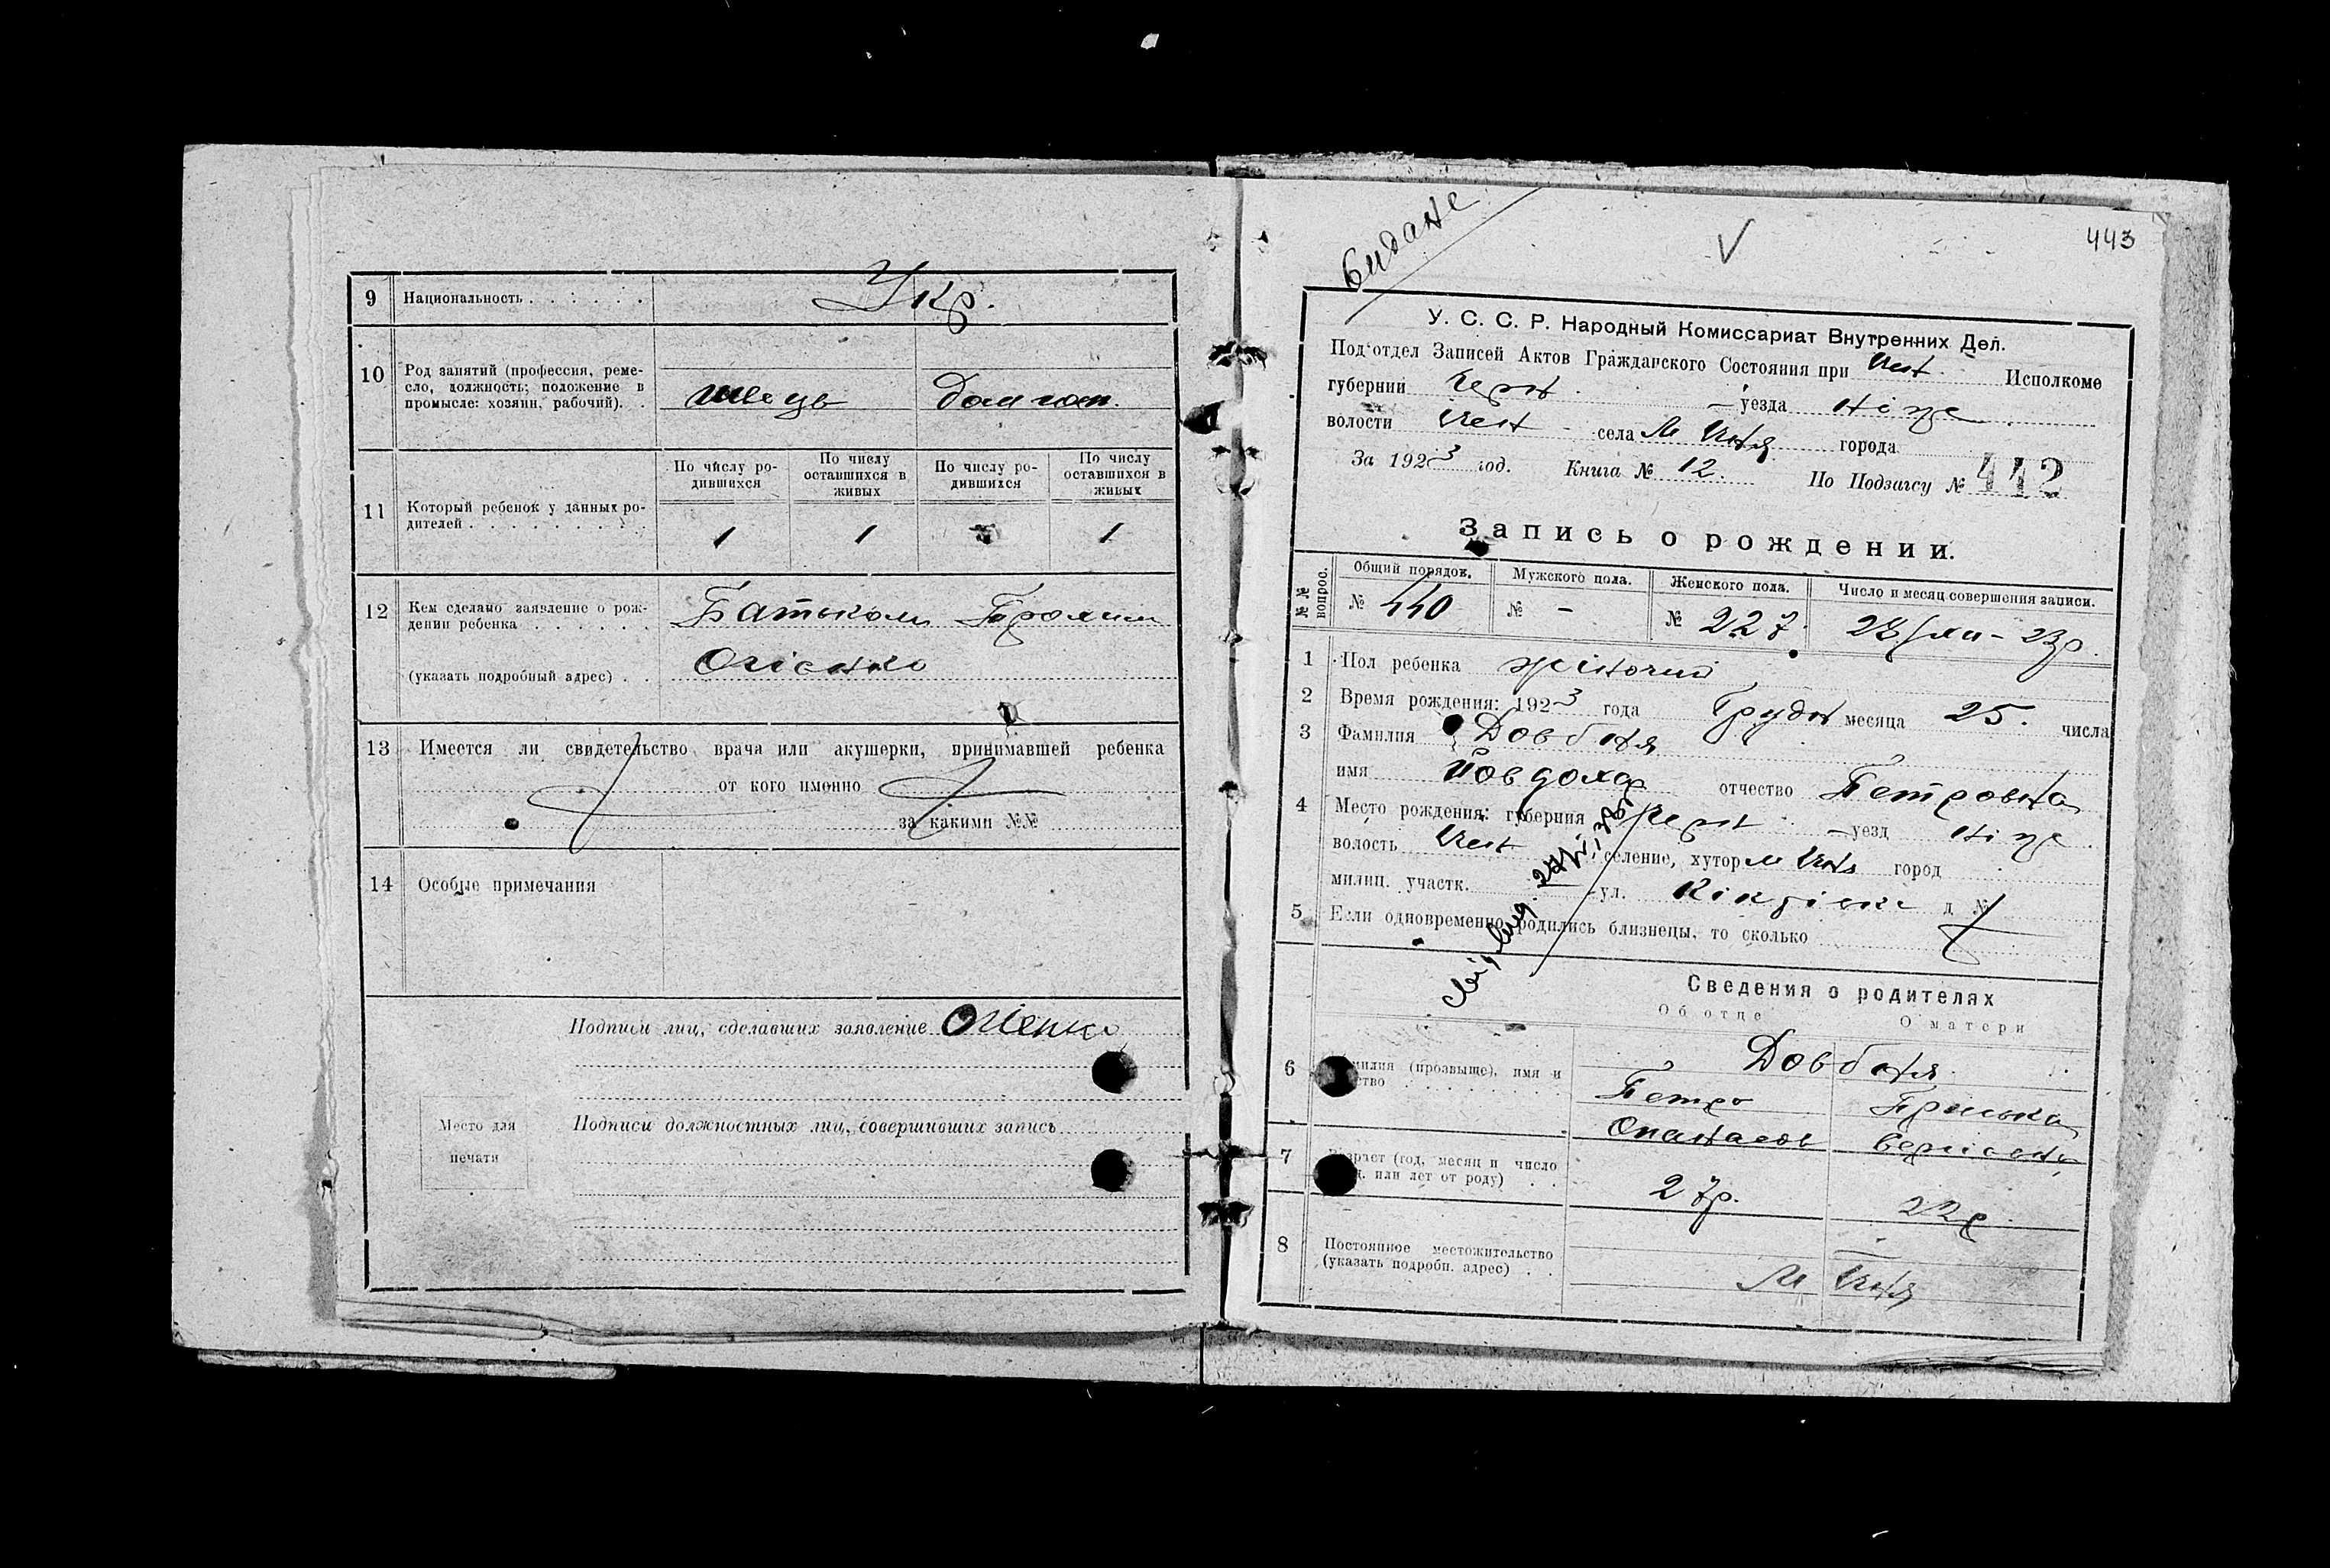 9 Национальность Укр.
10 Род занятий (профессия, реме-
сло, должность; положение в
промысле: хозяин, рабочий). швець Дом госп.
По числу ро-
дившихся По числу
оставшихся в
живых По числу ро-
дившихся По числу
оставшихся в
живых
11 Который ребенок у данных ро-
дителей 1 1 1
12 Кем сделано заявление о рож-
дении ребенка Батьком
(указать подробный адрес)
13 Имеется ли свидетельство врача или акушерки, принимавшей ребенка
от кого именно
за какими №№
14 Особые примечания
Подписи лиц, сделавших заявление
Подписи должностных лиц, совершивших запись
Место для
печати
видане
443
У. С. С. Р. Народный Комиссариат Внутренних Дел.
Под'отдел Записей Актов Гражданского Состояния при Ичн. Исполкоме
губернии Черн. уезда Ніже
волости Ичн села М Ичня города
За 1923 год. Книга № 12. По Подзагсу № 442
Запись о рождении.
№№ вопрос. Общий порядок. Мужского пола. Женского пола. Число и месяц совершения записи.
№ 440 № - № 227 28/хіі - 23р.
1 Пол ребенка жіночий
2 Время рождения: 1923 года Грудн месяца 25. числа
3 Фамилия Довбня
имя Йовдоха отчество Петровна
4 Место рождения: губерния Черн уезд Ніже
волость Ичн селение, хутор м Ичня город
милиц. участк. ул. д №
5 Если одновременно родились близнецы, то сколько
Сведения о родителях
Об отце О матери
Довбня
6 Фамилия (прозвище), имя и
отчество Петро Приська
Опанасов
7 Возраст (год, месяц и число
рожд. или лет от роду) 27р. 22р
8 Постоянное местожительство
(указать подробн. адрес) М Ичня